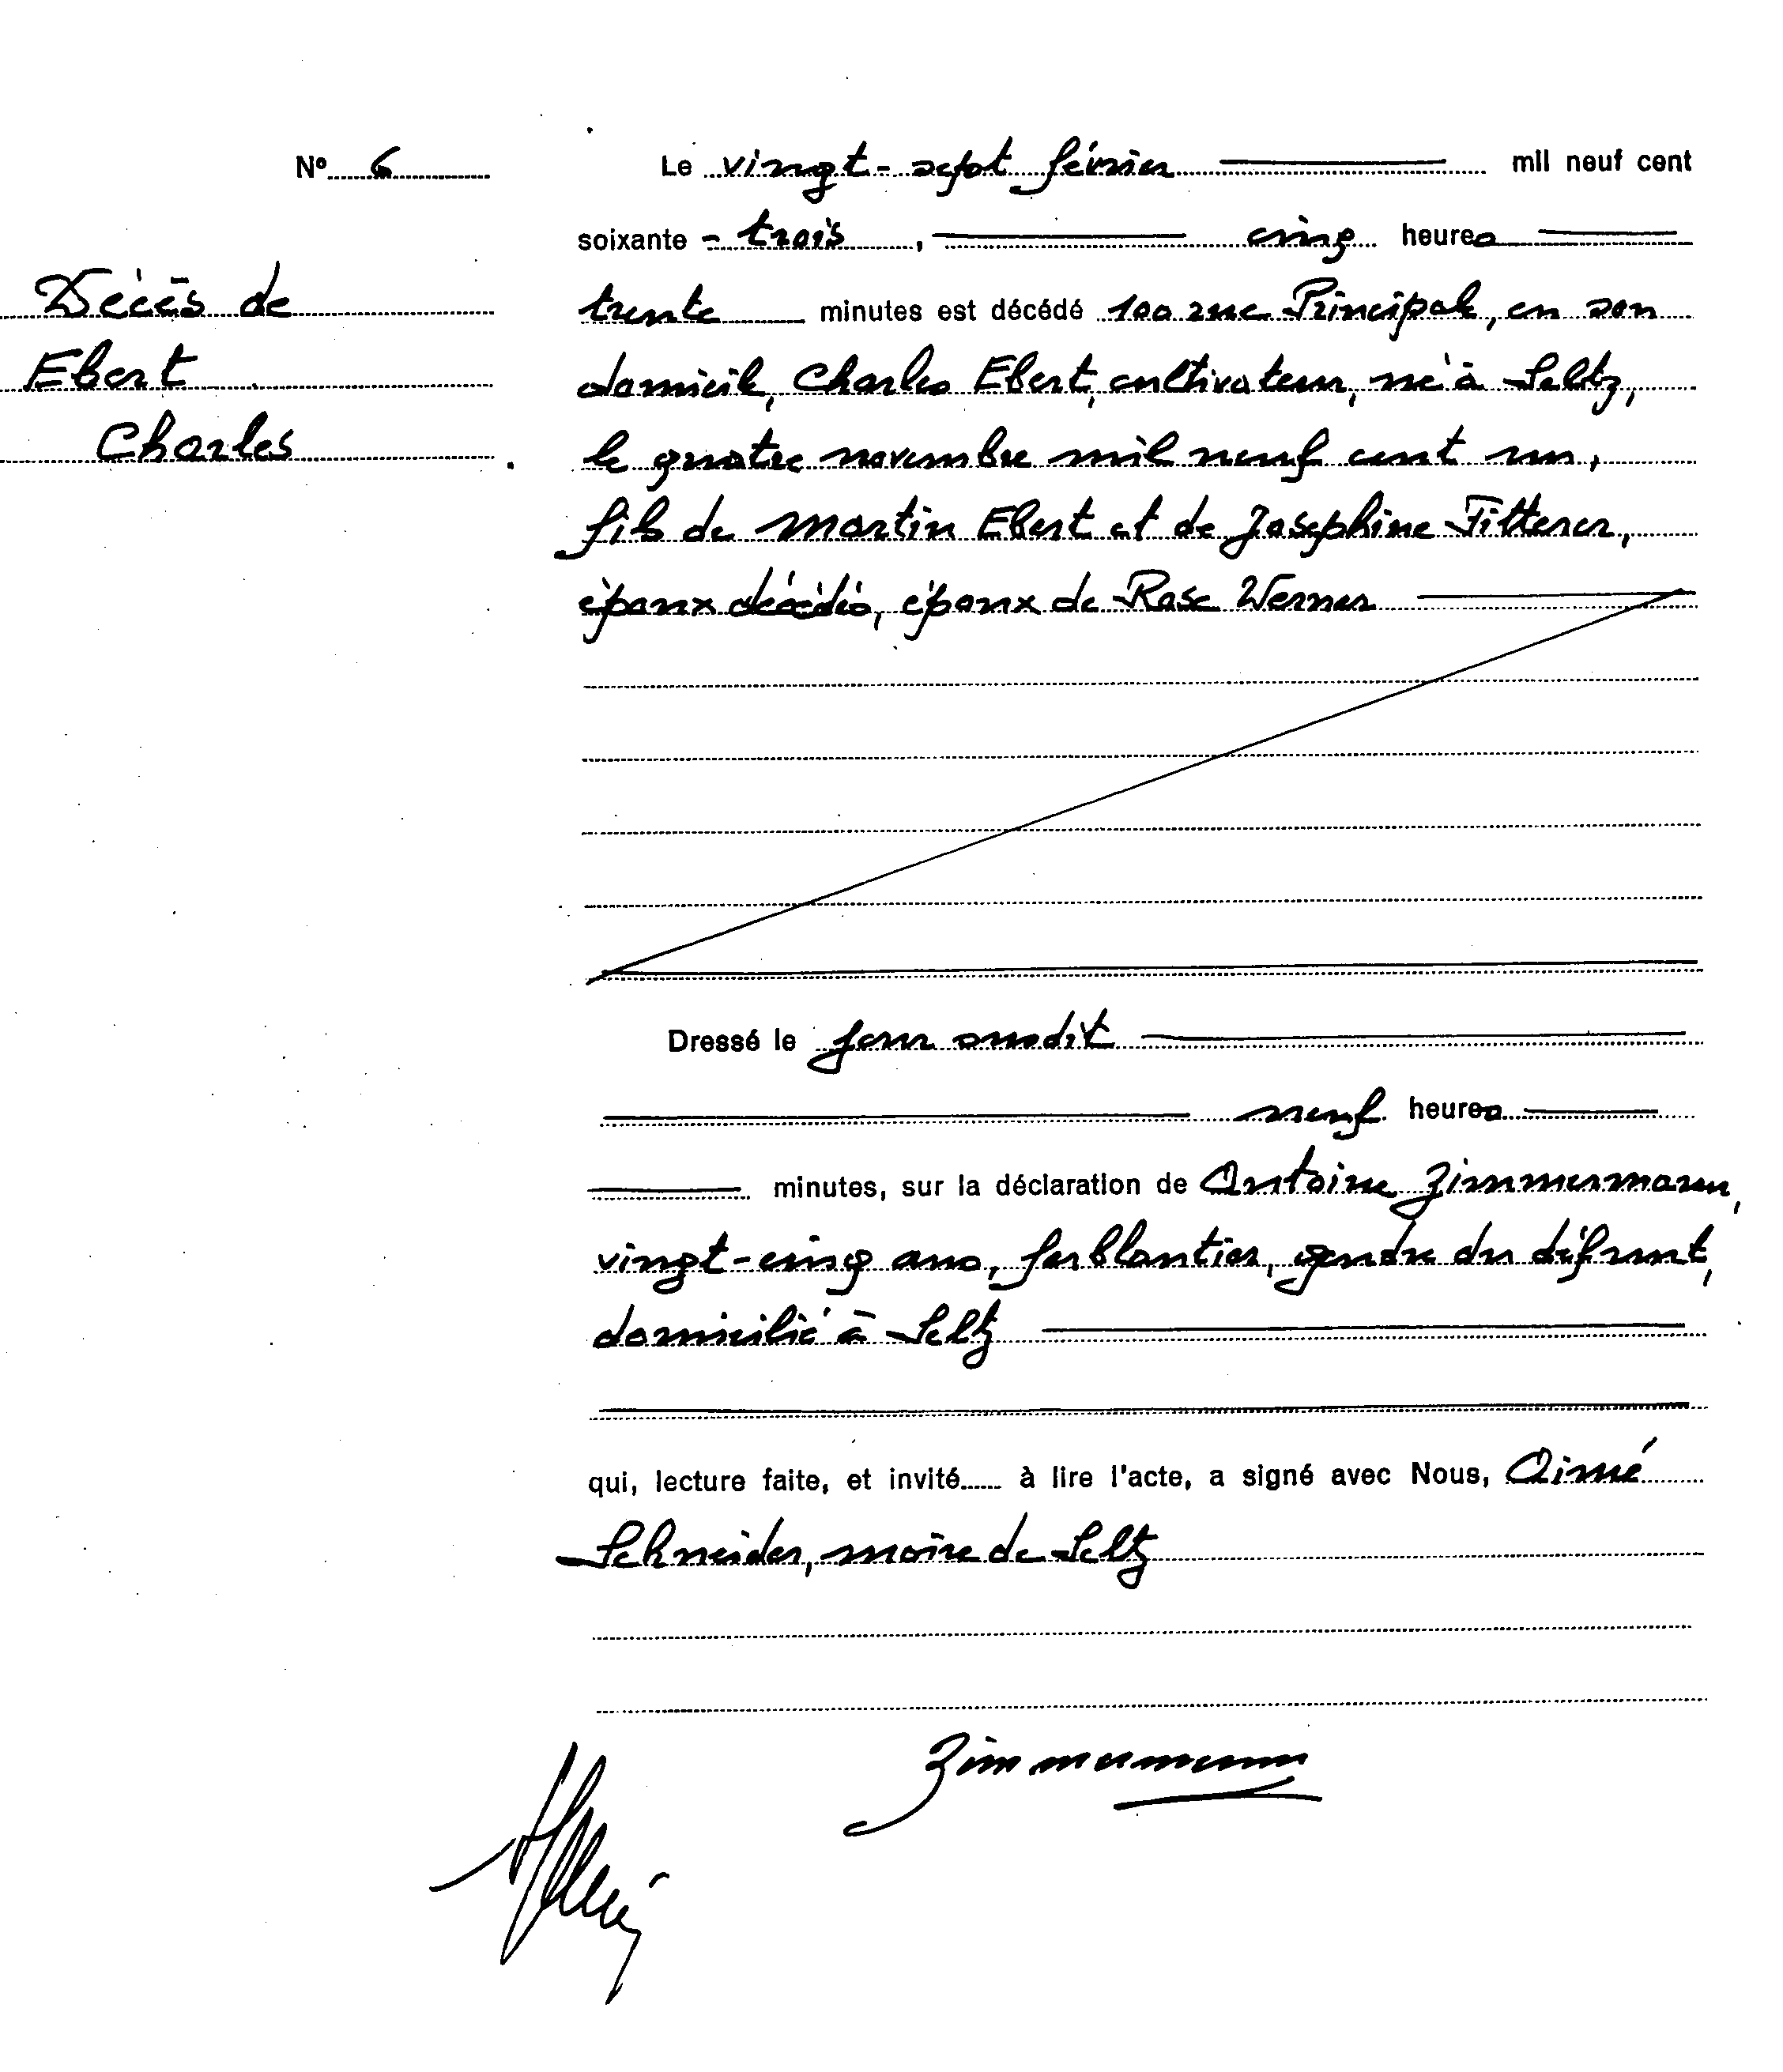 N° 6
Le vingt-sept février mil neuf cent
soixante - trois, cinq heures
Décès de
Ebert
Charles
trente minutes est décédé 100 rue Principale, en son
domicile, Charles Ebert, cultivateur, né à Seltz,
le quatre novembre mil neuf cent un,
fils de Martin Ebert et de Joséphine Fitterer,
époux décédés, époux de Rose Werner
Dressé le jour susdit
neuf heures
minutes, sur la déclaration de Antoine Zimmermann,
vingt-cinq ans, ferblantier, gendre du défunt,
domicilié à Seltz
qui, lecture faite, et invité à lire l'acte, a signé avec Nous, Aimé
Schneider, maire de Seltz
Zimmermann